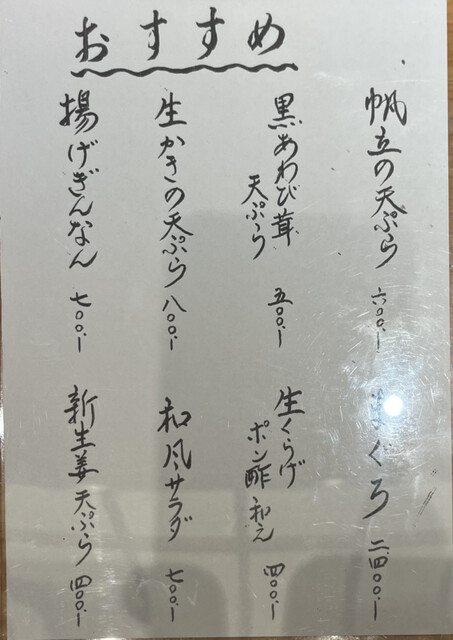 おすすめ
帆立の天ぷら 六〇〇.-
黒あわび茸
天ぷら 五〇〇.-
生かきの天ぷら 八〇〇.-
揚げぎんなん 七〇〇.-
まぐろ 二、四〇〇.-
生くらげ
ポン酢和え 四〇〇.-
和風サラダ 七〇〇.-
新生姜天ぷら 四〇〇.-